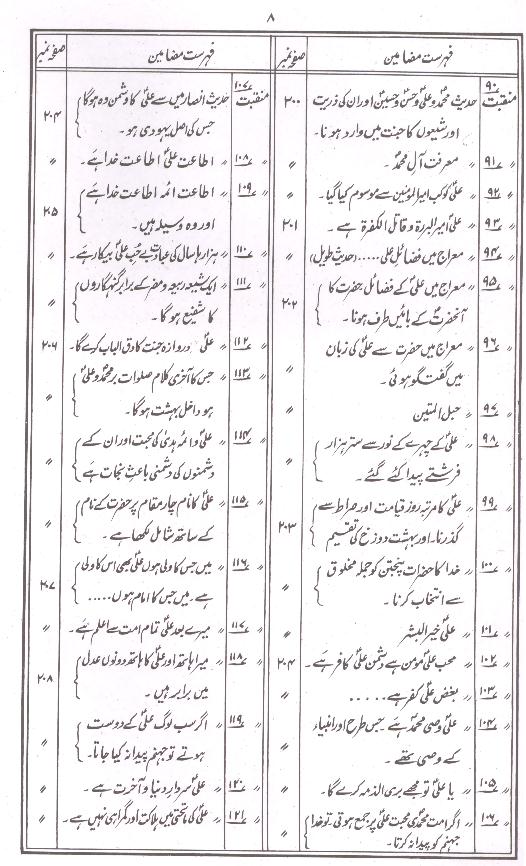 ۸
فہرست مضامین صفحہ نمبر
۹۰ منقبت حدیث محمدؐ و علیؑ و حسنؑ و حسینؑ اور ان کی ذریت ۲۰۰
اور شیعوں کا جنت میں وارد ہونا۔
۹۱〃 〃 معرفت آل محمدؐ۔ 〃
۹۲〃 〃 علیؑ کو کب امیر المومنین سے موسوم کیا گیا۔ 〃
۹۳〃 〃 علیؑ امیر البررۃ و قاتل الکفرۃ ہے۔ ۲۰۱
۹۴〃 〃 معراج میں فضائل علی ..... (حدیث طویل) 〃
۹۵〃 〃 معراج میں علیؑ کے فضائل حضرت کا ۲۰۲
آنحضرتؐ کے بائیں طرف ہونا۔
۹۶〃 〃 معراج میں حضرت سے علیؑ کی زبان 〃
میں گفتگو ہوئی۔
۹۷〃 〃 حبل المتین 〃
۹۸〃 〃 علیؑ کے چہرے کے نور سے ستر ہزار 〃
فرشتے پیدا کئے گئے۔
۹۹〃 〃 علیؑ کا مرتبہ روز قیامت اور صراط سے ۲۰۳
گذرنا۔ اور بہشت و دوزخ کی تقسیم
۱۰۰〃 〃 خدا کا حضرات پنجتن کو جملہ مخلوق 〃
سے انتخاب کرنا۔
۱۰۱〃 〃 علیؑ خیر البشر 〃
۱۰۲〃 〃 محب علیؑ مومن ہے دشمن علیؑ کافر ہے۔ ۲۰۴
۱۰۳〃 〃 بغض علیؑ کفر ہے ..... 〃
۱۰۴〃 〃 علیؑ وصی محمدؐ ہے۔ جس طرح اور انبیاء 〃
کے وصی تھے۔
۱۰۵〃 〃 یا علیؑ تو مجھے بری الذمہ کرے گا۔ 〃
۱۰۶〃 〃 اگر امت محمدؐی محبت علیؑ پر جمع ہوتی۔ تو خدا 〃
جہنم کو پیدا نہ کرتا۔
فہرست مضامین صفحہ نمبر
۱۰۷ منقبت حدیث انصار میں سے علیؑ کا دشمن وہ ہوگا ۲۰۴
جس کی اصل یہودی ہو۔
۱۰۸〃 〃 اطاعت علیؑ اطاعت خدا ہے۔ 〃
۱۰۹〃 〃 اطاعت ائمہ اطاعت خدا ہے ۲۰۵
اور وہ وسیلہ ہیں۔
۱۱۰〃 〃 ہزارہا سال کی عبادت بے حب علیؑ بیکار ہے۔ 〃
۱۱۱〃 〃 ایک شیعہ ربیعہ و مضر کے برابر گنہگاروں 〃
کا شفیع ہوگا۔
۱۱۲〃 〃 علیؑ دروازہ جنت کا دق الباب کرے گا۔ ۲۰۶
۱۱۳〃 〃 جس کا آخری کلام صلوات بر محمدؐ و علیؑ 〃
ہو داخل بہشت ہوگا۔
۱۱۴〃 〃 علیؑ و ائمہ ہدیٰ کی محبت اور ان کے 〃
دشمنوں کی دشمنی باعث نجات ہے
۱۱۵〃 〃 علیؑ کا نام چار مقام پر حضرت کے نام 〃
کے ساتھ شامل لکھا ہے۔
۱۱۶〃 〃 میں جس کا ولی ہوں علیؑ بھی اس کا ولی ۲۰۷
ہے۔ میں جس کا امام ہوں .....
۱۱۷〃 〃 میرے بعد علیؑ تمام امت سے اعلم ہے۔ 〃
۱۱۸〃 〃 میرا ہاتھ اور علیؑ کا ہاتھ دونوں عدل ۲۰۸
میں برابر ہیں۔
۱۱۹〃 〃 اگر سب لوگ علیؑ کے دوست 〃
ہوتے تو جہنم پیدا نہ کیا جاتا۔
۱۲۰〃 〃 علیؑ سردار دنیا و آخرت ہے۔ 〃
۱۲۱〃 〃 علیؑ کی ماتحتی میں ہلاکت اور گمراہی نہیں ہے۔ 〃